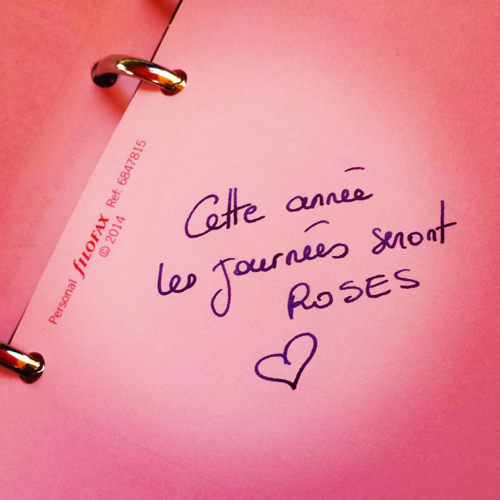 Personal filofax Ref: 6847815
© 2014
Cette année
les journées seront
ROSES